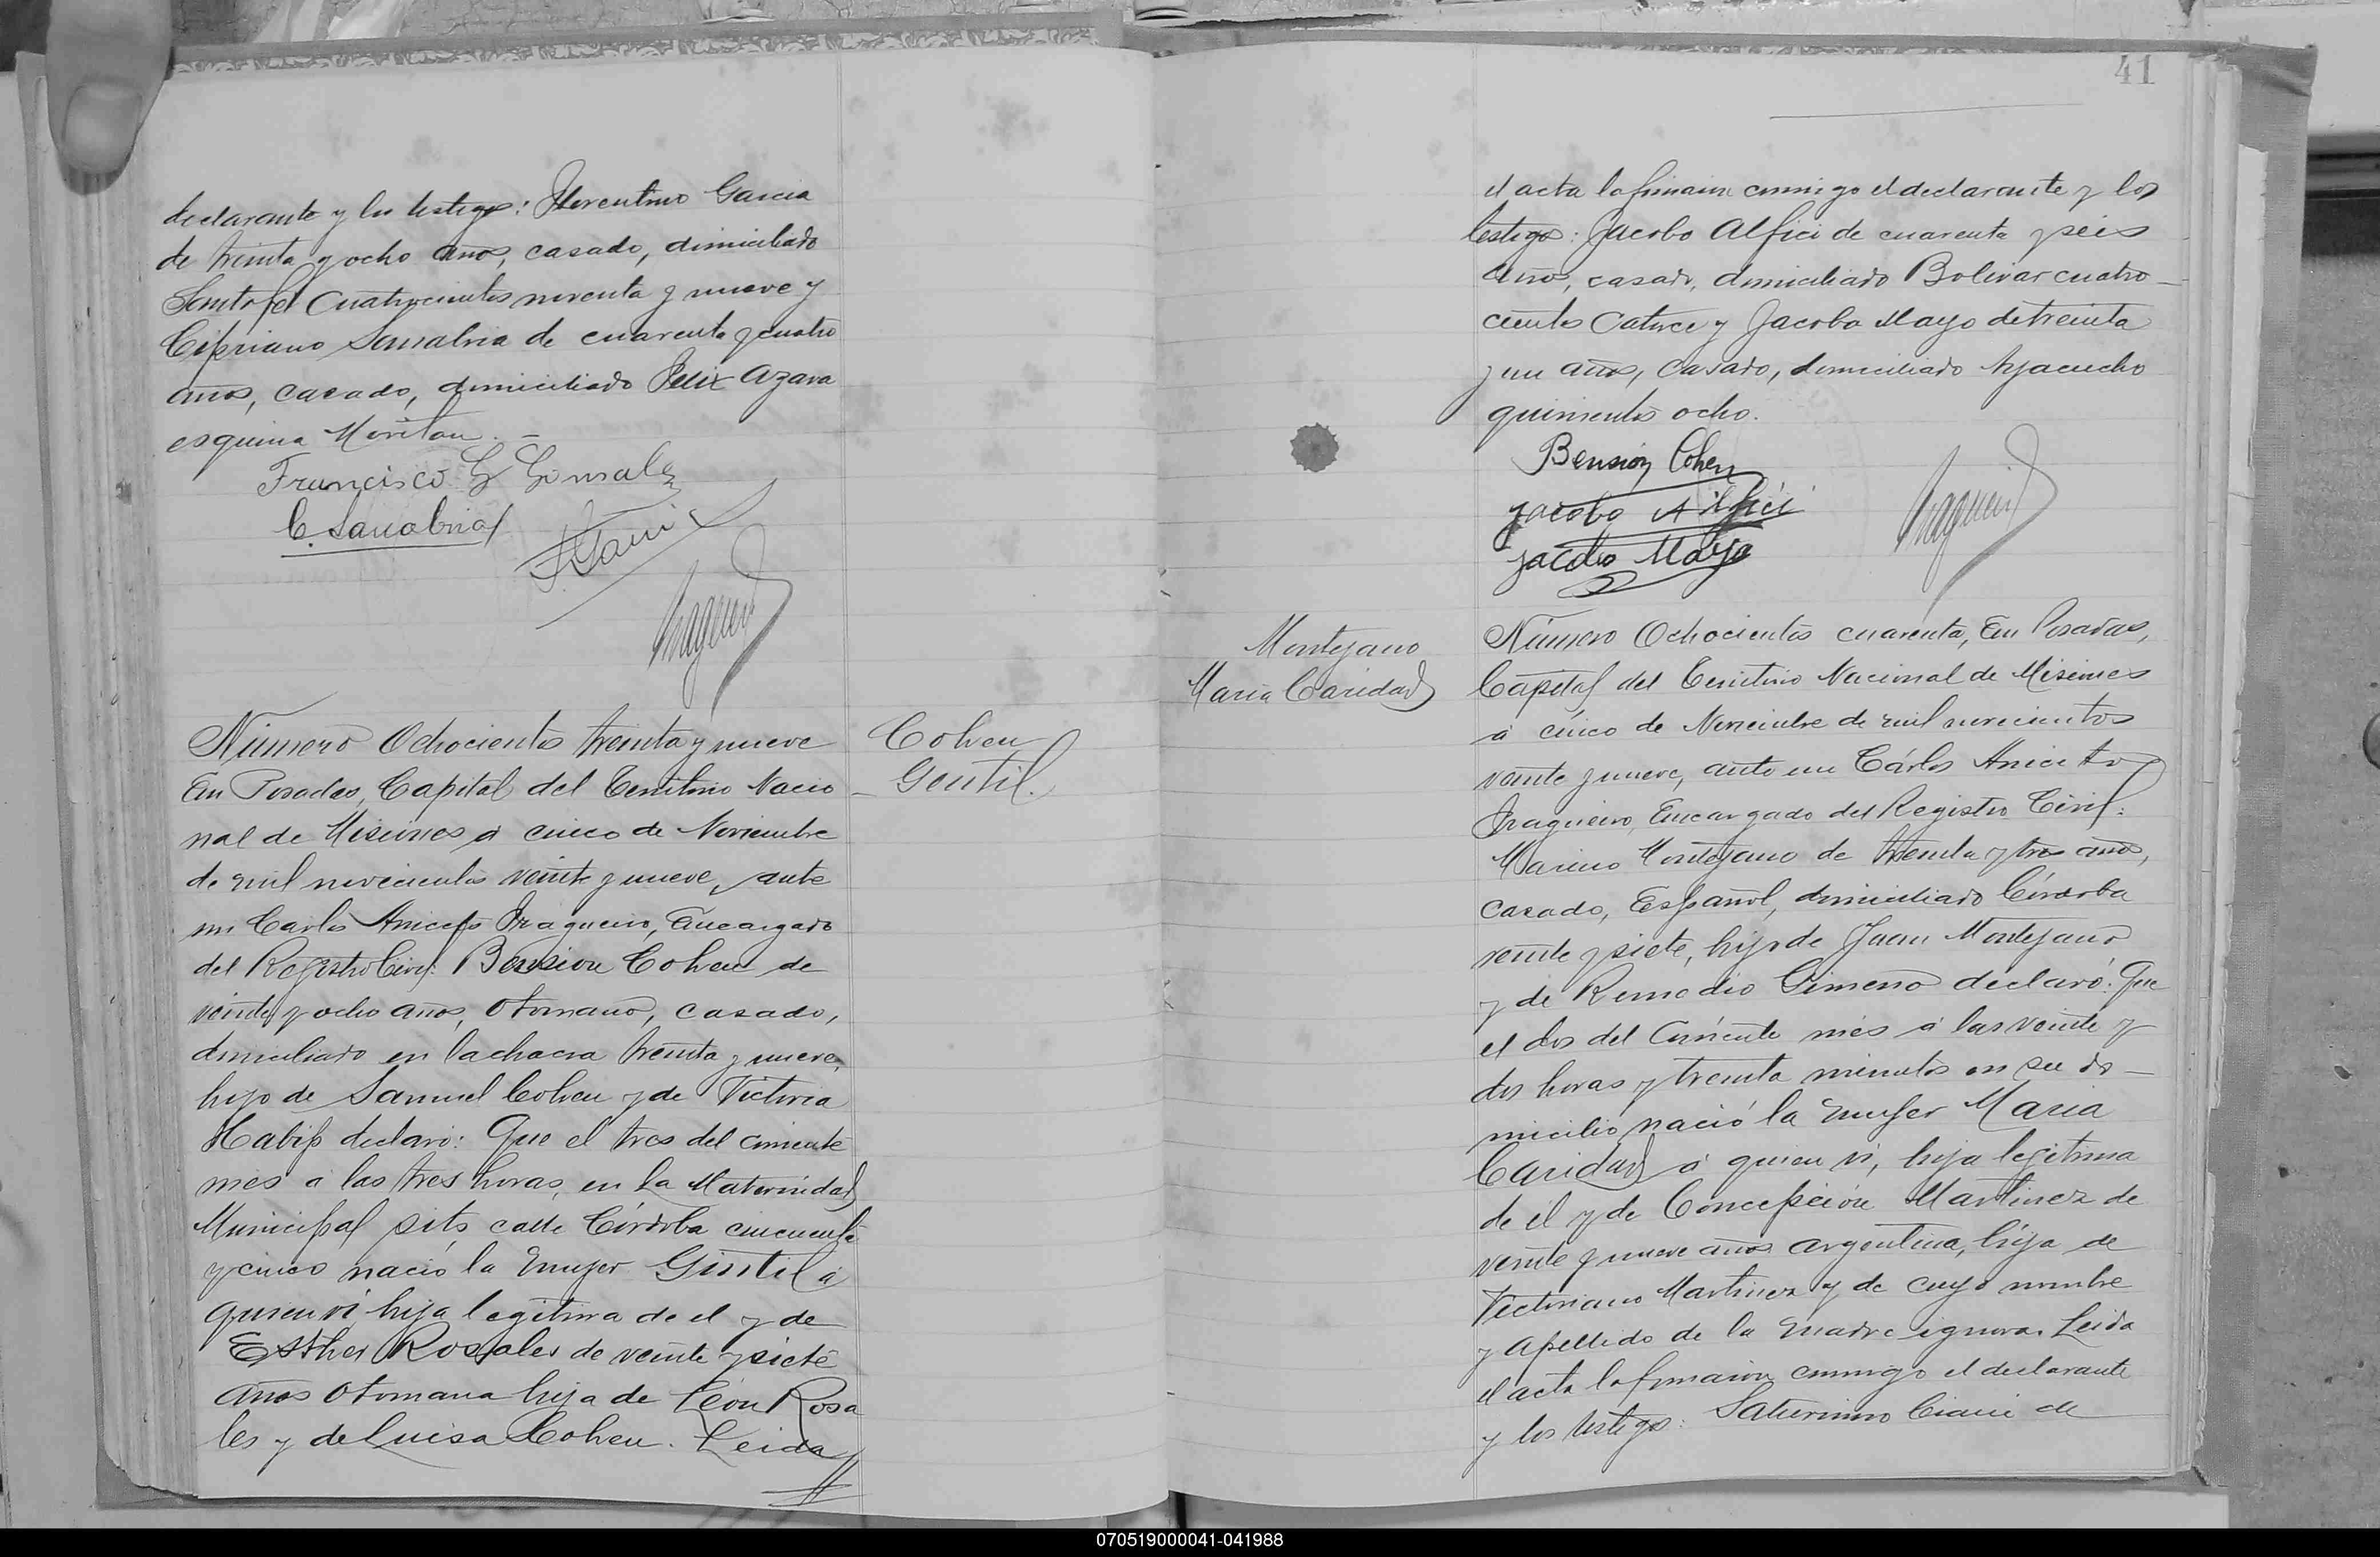 declarante y los testigos: Florentino Garcia
de treinta y ocho años, casado, domiciliado
Santa fé Cuatrocientos noventa y nueve y
Cipriano Sanabria de cuarenta y cuatro
años, casado, domiciliado Felix Azara
esquina
Francisco G Gonsalez
C. Sanabria
Número Ochocientos treinta y nueve
En Posadas, Capital del Territorio Nacio
nal de Misiones á cinco de Noviembre
de mil novecientos veinte y nueve, ante
mi Carlos Aniceto Fragueiro, Encargado
del Registro Civil: Bension Cohen de
veinte y ocho años, otomano, casado,
domiciliado en la chacra treinta y nueve,
hijo de Samuel Cohen y de Victoria
Habif declaró: Que el tres del corriente
mes a las tres horas, en la Maternidad
Municipal sito calle Córdoba cincuenta
y cinco nació la mujer Gentil á
quien ví hija legitima de el y de
Esther Rosales de veinte y siete
años otomana hija de León Rosa
les y de Luisa Cohen. Leida
Cohen
Gentil.
41
el acta la firmaron conmigo el declarante y los
testigos: Jacobo Alfici de cuarenta y seis
años, casado, domiciliado Bolivar cuatro-
cientos catorce y Jacobo Mayo de treinta
y un años, casado, domiciliado Ayacucho
quinientos ocho.
Bension Cohen
Jacobo Alfici
Jacobo Mayo
Montejano
Maria Caridad
Número Ochocientos cuarenta, En Posadas,
Capital del Territorio Nacional de Misiones
á cinco de Noviembre de mil novecientos
veinte y nueve, ante mi Cárlos Aniceto
Fragueiro, Encargado del Registro Civil:
Marino Montejano de treinta y tres años,
casado, Español, domiciliado Córdoba
veinte y siete, hijo de Juan Montejano
y de Remedio Gimeno declaró: Que
el dos del corriente mes á las veinte y
dos horas y treinta minutos en su do-
micilio nació la mujer Maria
Caridad á quien ví, hija legitima
de él y de Concepción Martinez de
veinte y nueve años argentina, hija de
Victoriano Martinez y de cuyo nombre
y apellido de la madre ignora. Leida
el acta la firmaron conmigo el declarante
y los testigos: Saturnino de
070519000041-041988